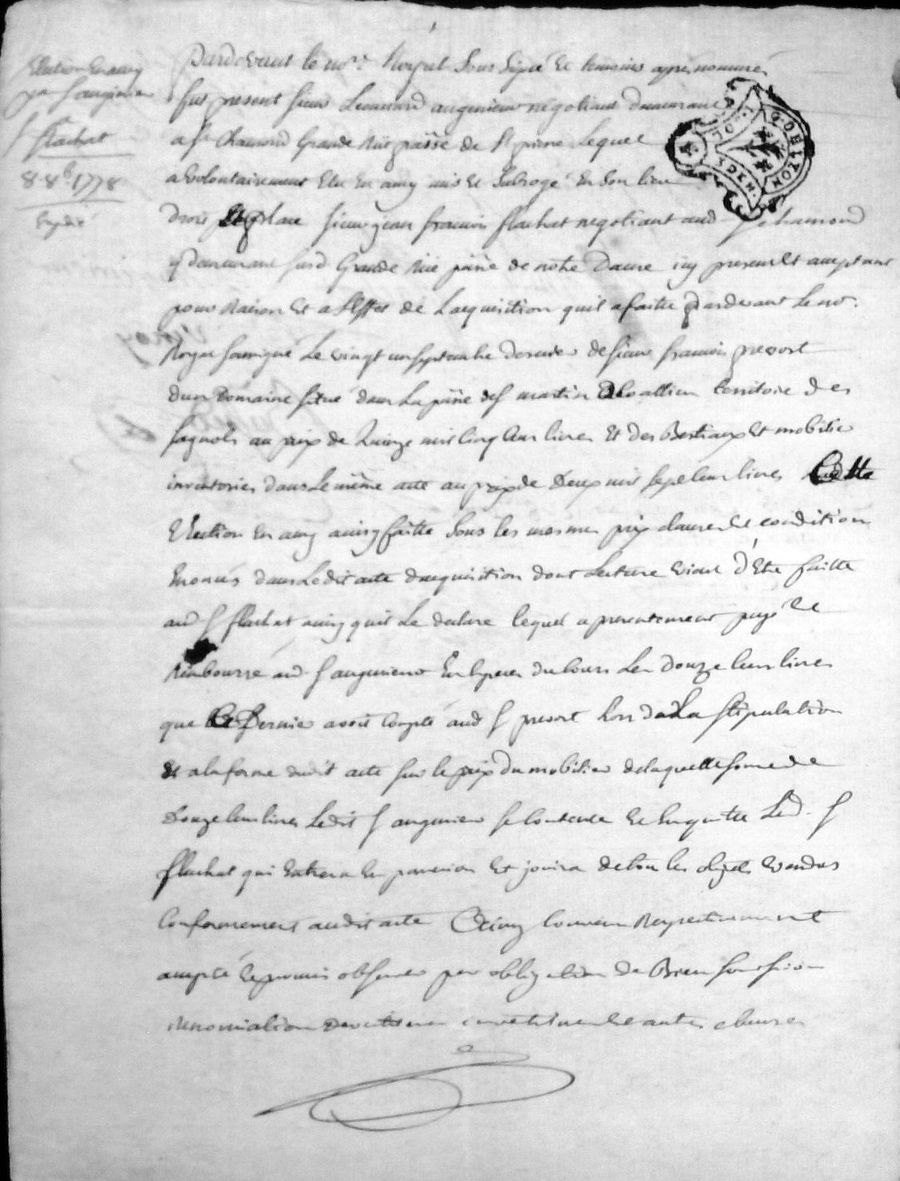 Election en amy
par S. augenieur
S. flachat
8 8b. 1778
Expedié
Pardevant le nore. Royal Sous Signé et temoins après nommés
fut present sieur Leonnard augenieur negotiant demeurant
a St. Chamond Grande Rüe pāsse de St pierre Lequel
a volontairement Elu En amy mis et Subrogé En Son lieu
Droit Et place sieur jean francois flachat negotiant aud St. chamond
y demeurant susd Grande Rüe pāsse de notre Dame icy present et acceptant
pour Raison Et a L'effet de L'acquisition quil a faitte Pardevant Le nore.
Royal soussigné Le vingt un septembre dernier de sieur francois prevost
d'un Domaine situé dans La pāsse de St martin a Coallieu territoire des
fagnols au prix de Quinze mil Cinq Cens livres Et des Bestiaux Et mobilier
inventoriés dans Le même acte au prix de Deux mil sept Cens livres Ladte
Election En amy ainsy faitte Sous les mesmes prix clauses et conditions
Enoncés dans Ledit acte d'acquisition dont Lecture vient d'Etre faitte
aud S flachat ainsy quil Le declare lequel a presentement payé Et
Rembourcé aud S augenieur En Especes du Cours Les Douze Cens livres
que Ce Dernier avoit Compté aud S prevost Lors de La Stipulation
Et a la forme dudit acte sur le prix Du mobilier de laquelle somme de
Douze Cens livres Ledit S augenieur se Contente Et En quitte Led. S
flachat qui Entrera En possession Et jouira de tous les objets vendus
Conformement audit acte Ainsy Convenu Respectivement
accepté Et promis observer par obligation de Biens soumissions
renonciations et autres clauses